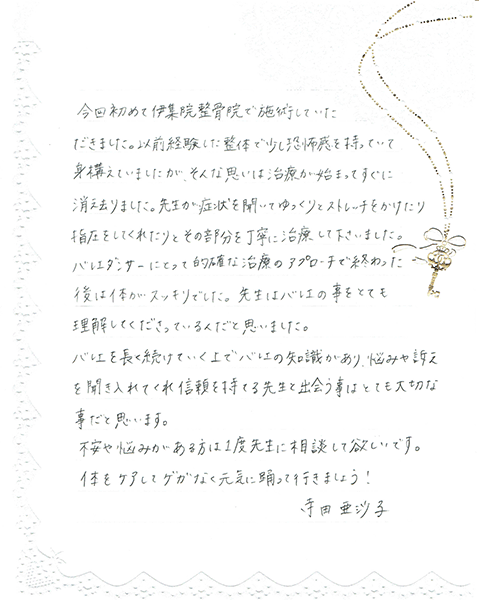 今回初めて伊集院整骨院で施術していた
だきました。以前経験した整体で少し恐怖感を持っていて
身構えていましたが、そんな思いは治療が始まってすぐに
消え去りました。先生が症状を聞いてゆっくりとストレッチをかけたり
指圧をしてくれたりとその部分を丁寧に治療して下さいました。
バレエダンサーにとって的確な治療のアプローチで終わった
後は体がスッキリでした。先生はバレエの事をとても
理解してくださっているんだと思いました。
バレエを長く続けていく上でバレエの知識があり、悩みや訴え
を聞き入れてくれ信頼を持てる先生と出会う事はとても大切な
事だと思います。
不安や悩みがある方は1度先生に相談して欲しいです。
体をケアしてケガなく元気に踊って行きましょう！
寺田 亜沙子